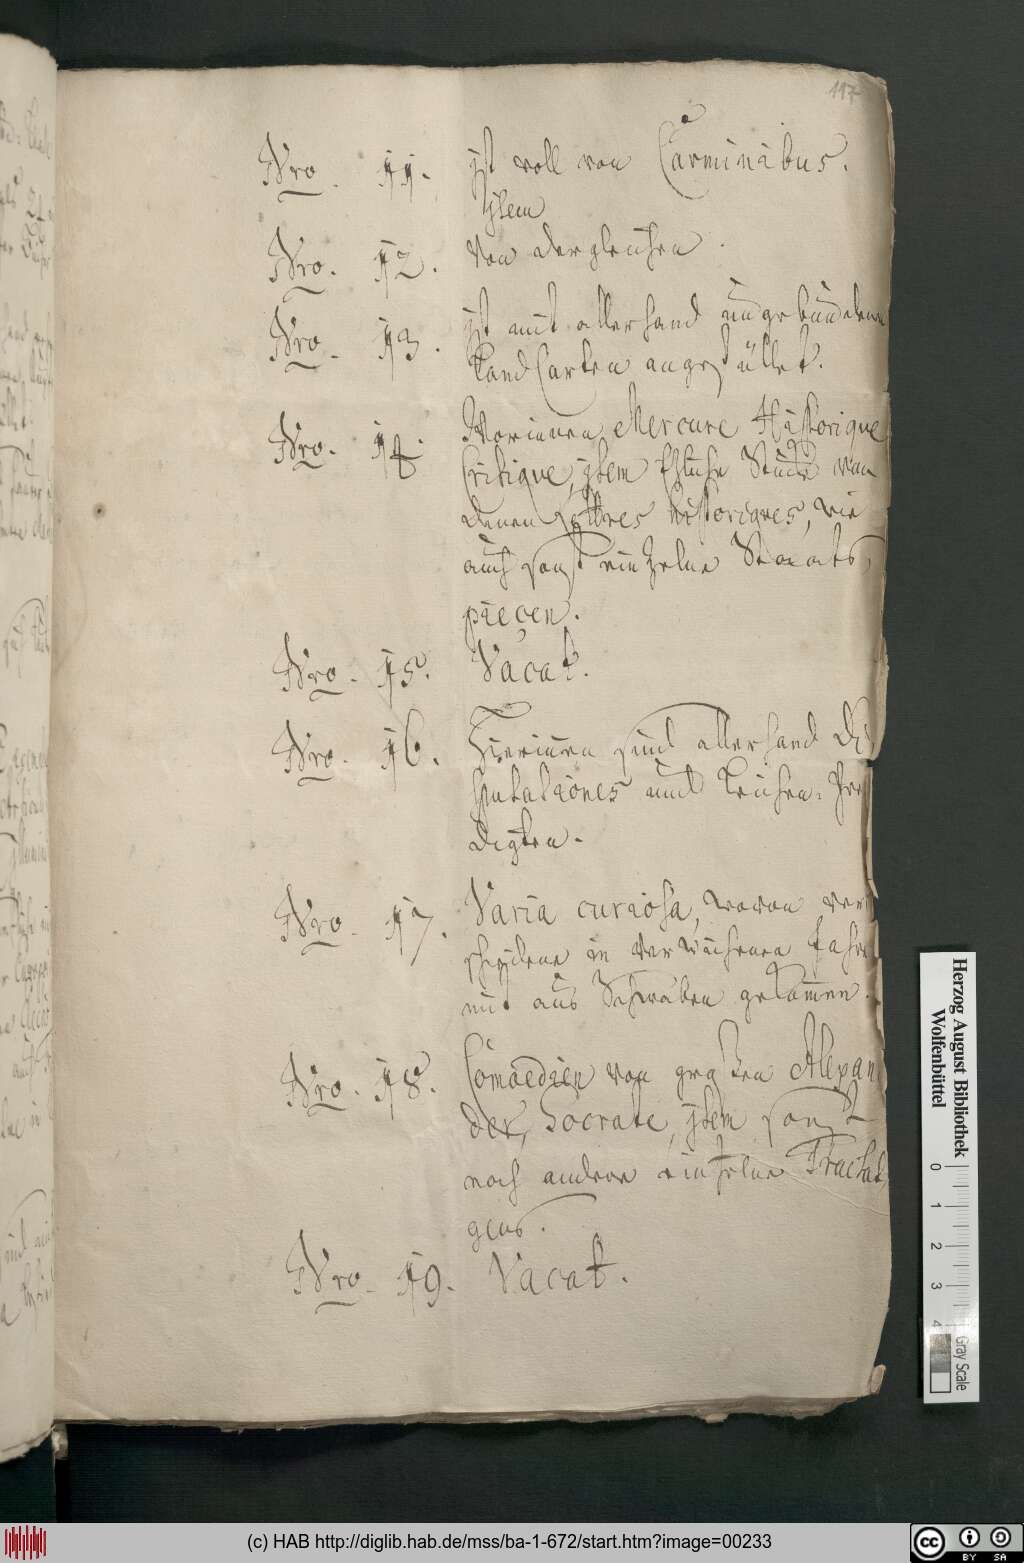 117
Nro. 11. ist voll von Carminibus.
item
Nro. 12. Von dergleichen.
Nro. 13. ist mit allerhand ungebundenen
Land Carten angefüllet.
Nro. 14. Worinnen Mercure Historique
Critique, item Etzliche Stücke von
denen Lettres historiques, wie
auch sonst einzelne Staats
piecen.
Nro. 15. Vacat.
Nro. 16. Hierinnen sind allerhand Di
sputationes und Leichen-Pre
digten.
Nro. 17. Varia curiosa, wovon ver
schiedene in verwichenen Jahre
mit aus Schwaben gekommen.
Nro. 18. Comoedien von großen Alexan
der, Socrate, item sonst
noch andere einzelne Tractat
gens.
Nro. 19. Vacat.
Herzog August Bibliothek
Wolfenbüttel
0 1 2 3 4
Gray Scale
(c) HAB http://diglib.hab.de/mss/ba-1-672/start.htm?image=00233
cc BY SA